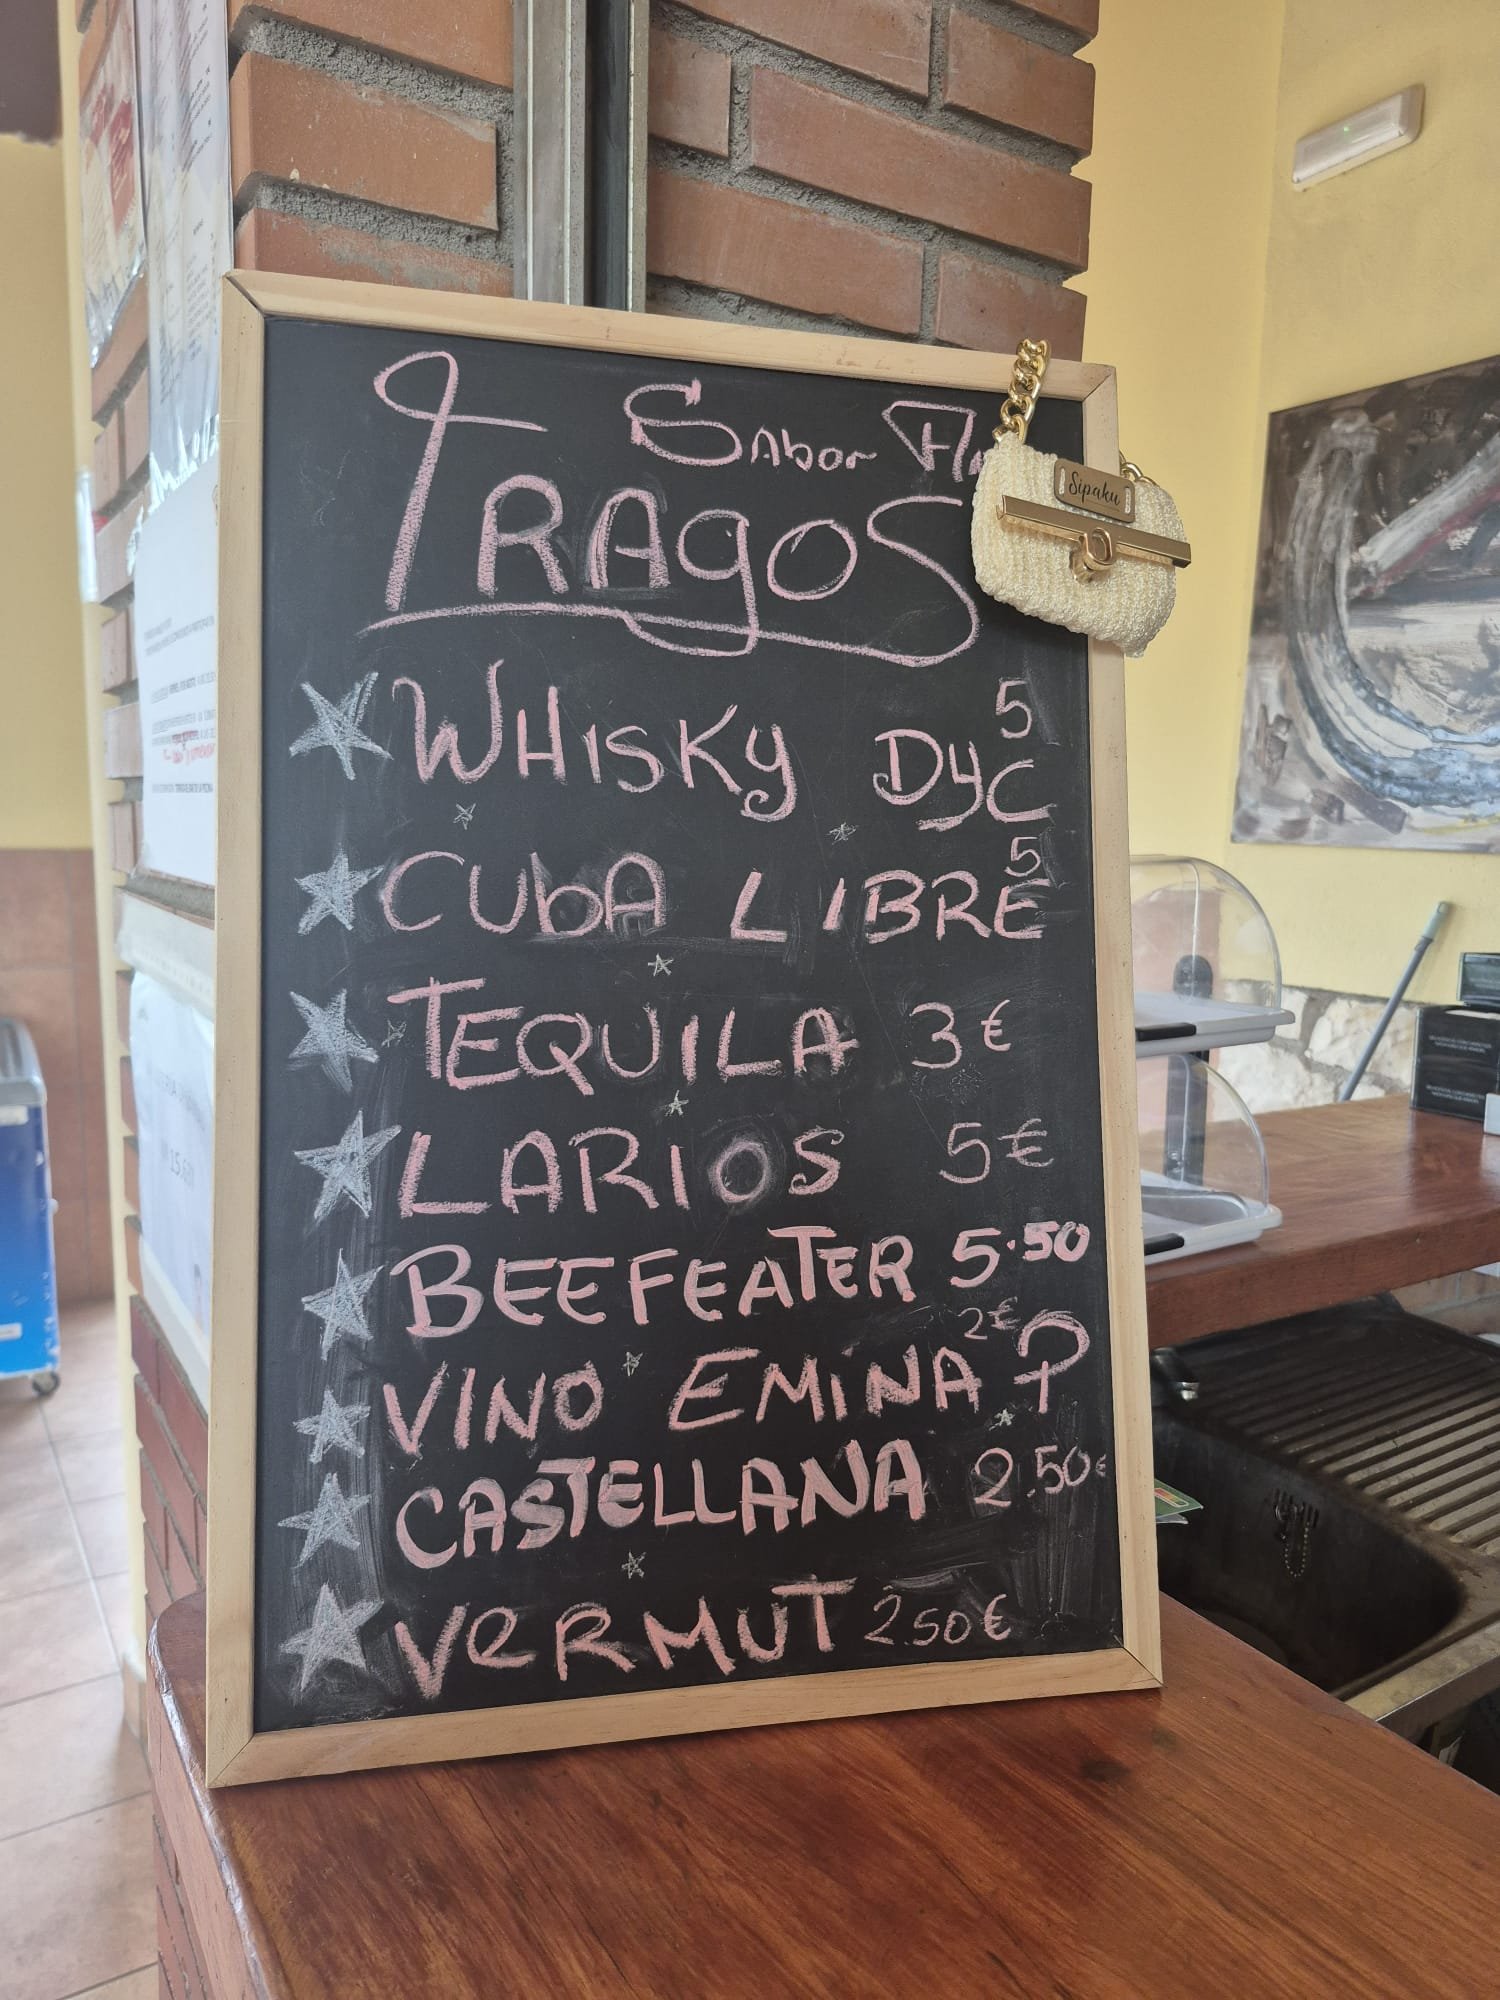 Sabor
TRAgOS
Sipaku
WHISKY DyC 5
CUbA LIBRE 5
TEQUILA 3€
LARIOS 5€
BEEFEATER 5.50
VINO EMiNA 2€
CASTELLANA 2.50€
VeRMUT 2.50€
15,60